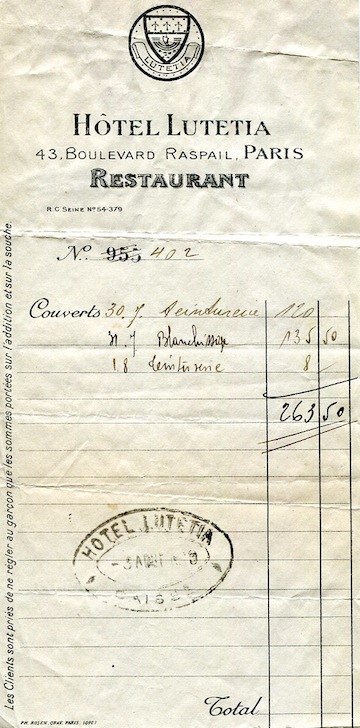 LUTETIA
HÔTEL LUTETIA
43, BOULEVARD RASPAIL, PARIS
RESTAURANT
R.C. SEINE Nº 54-379
Nº 955 402
Couverts 30.7 teinturerie 120
31.7 Blanchissage 135 50
1.8 teinturerie 8
263 50
HOTEL LUTETIA
3 AOUT
CAISSE
Total
Les Clients sont priés de ne régler au garçon que les sommes portées sur l'addition et sur la souche.